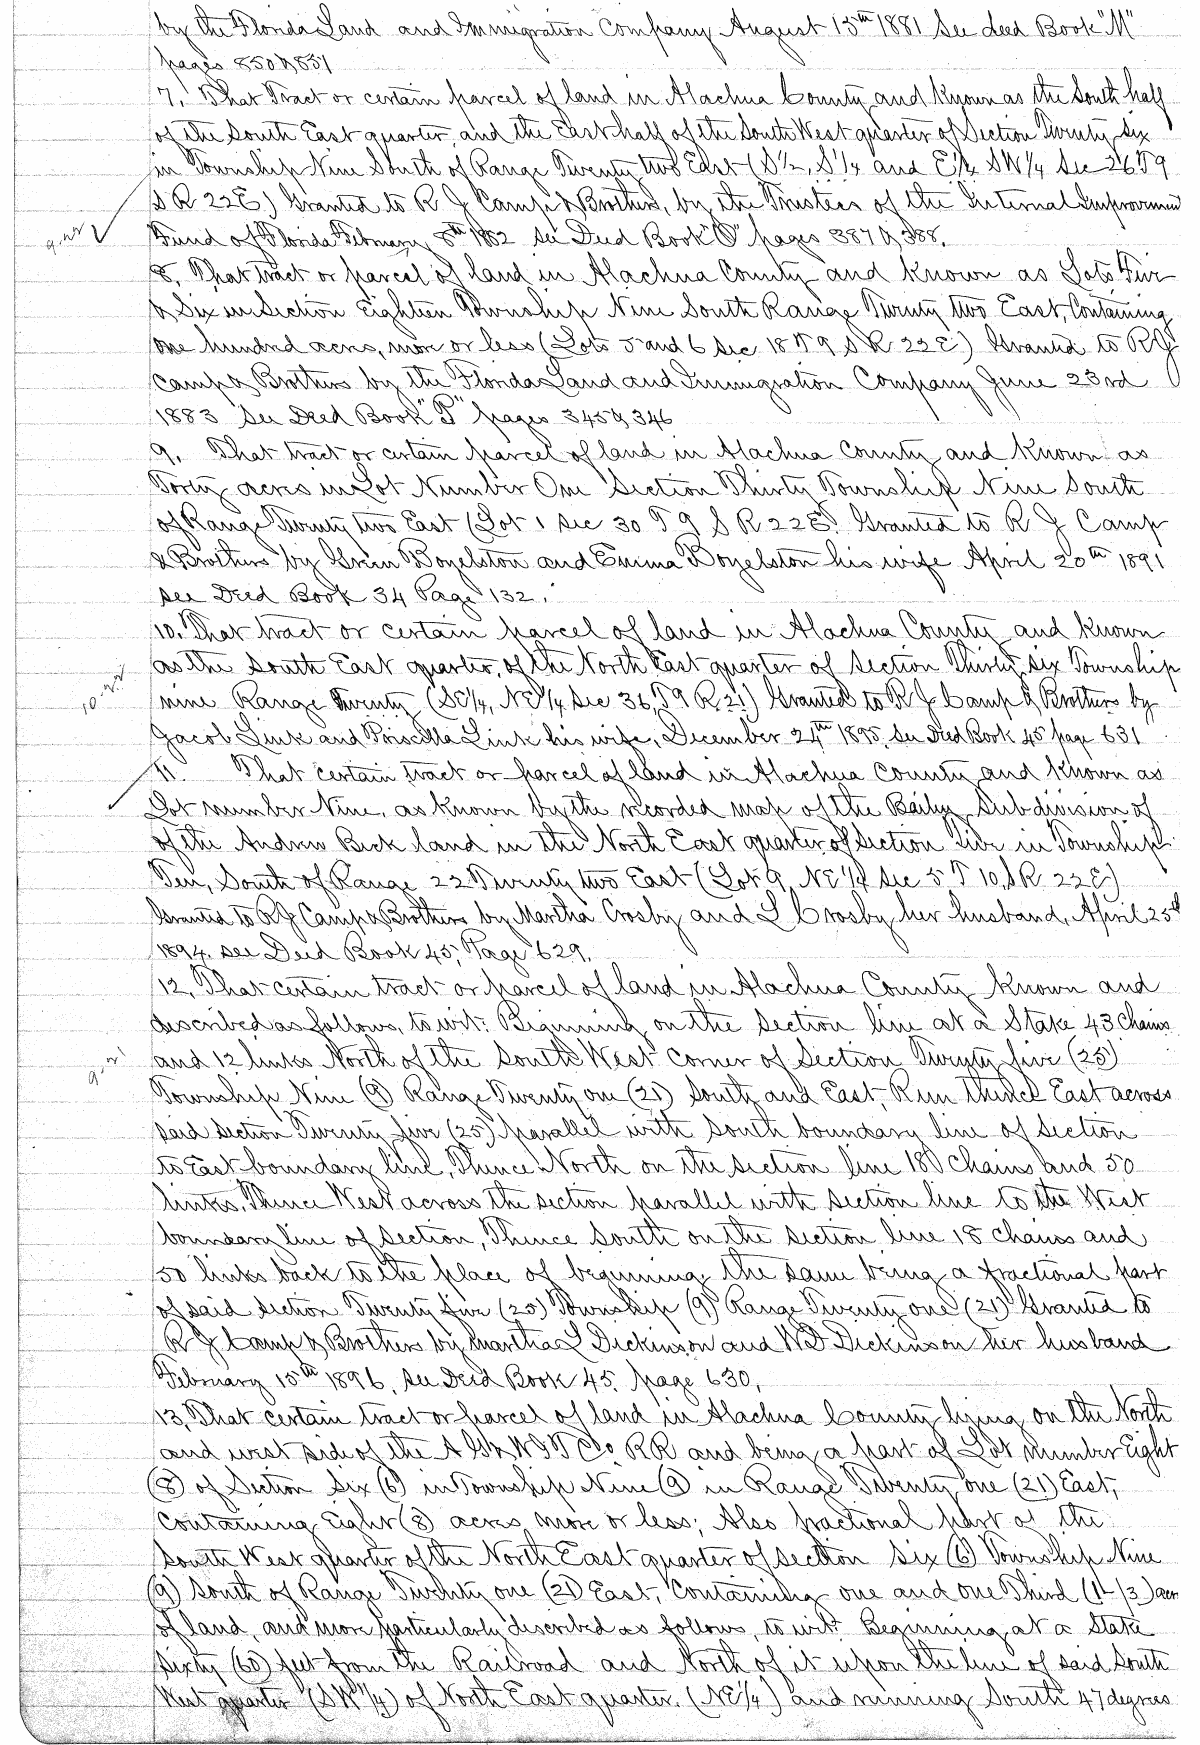 by the Florida Land and Immigration Company August 15th 1881 See deed Book "M"
pages 850 & 851
7. That Tract or certain parcel of land in Alachua County and Known as the South half
of the South East quarter, and the East half of the South West quarter of Section Twenty six
in Township Nine South of Range Twenty two East (S1/2, S1/4 and E1/2 SW1/4 Sec 26 T9
S R 22E) Granted to R J Camp & Brothers, by the Trustees of the Internal Improvement
9-22
Fund of Florida February 8th 1882 see Deed Book "O" pages 387 & 388.
8. That tract or parcel of land in Alachua County and Known as Lots Five
& Six in Section Eighteen Township Nine South Range Twenty two East, Containing
one hundred acres, more or less (Lots 5 and 6 Sec 18 T 9 S R 22E) Granted to R J
Camp & Brothers by the Florida Land and Immigration Company June 23rd
1883 See Deed Book "P" pages 345 & 346
9. That tract or certain parcel of land in Alachua County and Known as
Forty acres in Lot Number One Section Thirty Township Nine South
of Range Twenty two East (Lot 1 Sec 30 T 9 S R 22E) Granted to R J Camp
& Brothers by Green Boyelston and Emma Boyelston his wife April 20th 1891
see Deed Book 34 Page 132.
10. That tract or certain parcel of land in Alachua County and Known
as the South East quarter, of the North East quarter of Section Thirty six Township
10-22
nine Range Twenty (SE1/4, NE1/4 Sec 36, T9 R21) Granted to R J Camp & Brothers by
Jacob Link and Priscilla Link his wife, December 24th 1895, see Deed Book 45 page 631
11. That certain tract or parcel of land in Alachua County and Known as
Lot number Nine, as known by the recorded map of the Baily Subdivision of
of the Andrew Beck land in the North East quarter of Section Five in Township
Ten, South of Range 22 Twenty two East (Lot 9, NE1/4 Sec 5 T 10, S R 22E)
Granted to R J Camp & Brothers by Martha Crosby and L Crosby her husband, April 25th
1894. see Deed Book 45, Page 629.
12. That certain tract or parcel of land in Alachua County Known and
described as follows, to wit: Beginning on the Section line at a Stake 43 Chains
9-21
and 12 links North of the South West Corner of Section Twenty five (25)
Township Nine (9) Range Twenty one (21) South and East, Run thence East across
said section Twenty five (25) parallel with South boundary line of Section
to East boundary line, Thence North on the section line 18 Chains and 50
links, Thence West across the section parallel with section line to the West
boundary line of section, Thence South on the section line 18 Chains and
50 links back to the place of beginning, the same being a fractional part
of said section Twenty five (25) Township (9) Range Twenty one (21) Granted to
R J Camp & Brothers by Martha L Dickinson and W D Dickinson her husband
February 15th 1896, see Deed Book 45. page 630,
13, That certain tract or parcel of land in Alachua County lying on the North
and west side of the RR and being a part of Lot number Eight
(8) of Section Six (6) in Township Nine (9) in Range Twenty one (21) East,
Containing Eight (8) acres more or less; Also fractional part of the
South West quarter of the North East quarter of section six (6) Township Nine
(9) South of Range Twenty one (21) East, Containing one and one Third (1 1/3) acr
of land, and more particularly described as follows, to wit: Beginning at a Stake
Sixty (60) feet from the Railroad and North of it upon the line of said South
West quarter (SW1/4) of North East quarter. (NE1/4) and running South 47 degrees